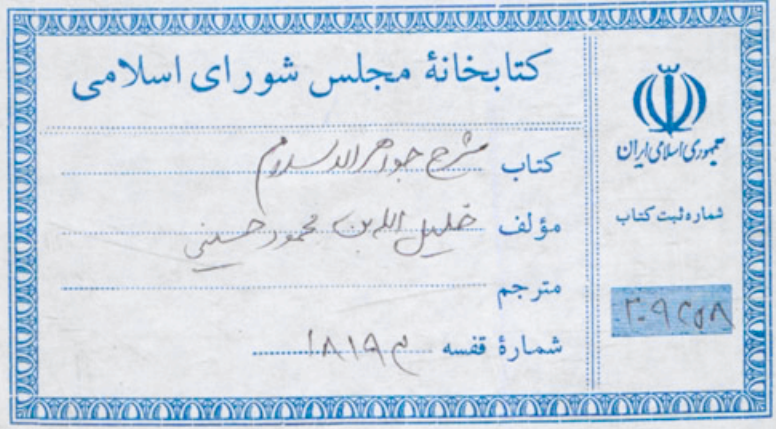 کتابخانهٔ مجلس شورای اسلامی
کتاب شرح جواهر الاسلام
مؤلف خلیل الله بن محمود حسینی
مترجم
شمارهٔ قفسه ۱۸۱۹۳
جمهوری اسلامی ایران
شماره ثبت کتاب
۲۰۹۲۵۸